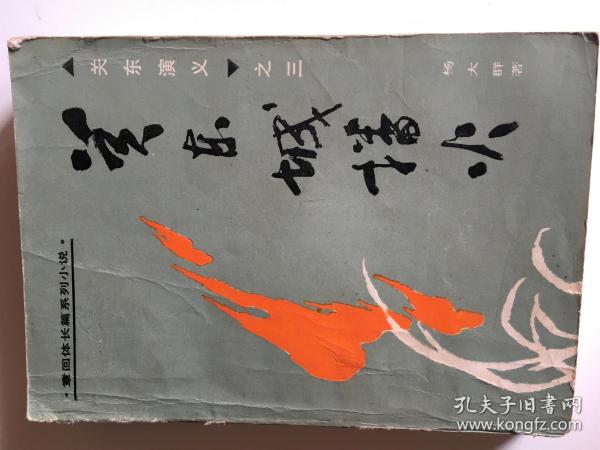 ◀关东演义▶之三
杨大群著
关东火
·章回体长篇系列小说·
孔夫子旧書网
www.kongfz.com